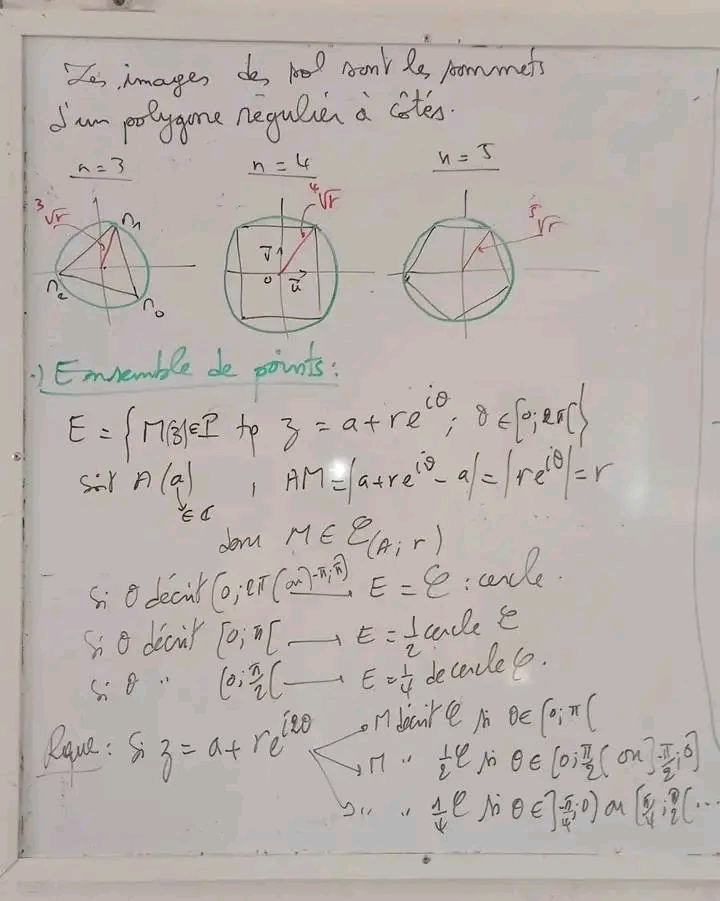 Les images des sol sont les sommets
d'un polygone régulier à côtés.
n = 3
n = 4
n = 5
³√r
⁴√r
⁵√r
M₁
M₂
M₀
v⃗
o
u⃗
.) Ensemble de points :
E = { M(z) ∈ P tq z = a + re^{iθ} ; θ ∈ [0; 2π[ }
soit A(a) , AM = |a + re^{iθ} - a| = |re^{iθ}| = r
∈ ℂ
donc M ∈ 𝒞(A; r)
Si θ décrit [0; 2π[ (ou ]-π; π]) ⟶ E = 𝒞 : cercle.
Si θ décrit [0; π[ ⟶ E = 1/2 cercle 𝒞
Si θ " [0; π/2[ ⟶ E = 1/4 de cercle 𝒞.
Rque : Si z = a + re^{i2θ}
→ M décrit 𝒞 si θ ∈ [0; π[
→ M " 1/2 𝒞 si θ ∈ [0; π/2[ ou ]-π/2; 0]
→ " " 1/4 𝒞 si θ ∈ ]-π/4; 0] ou [π/4; π/2[ ...